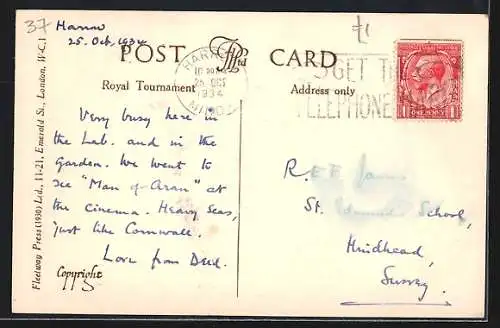 37
Harrow
25. Oct. 1934
POST CARD
Royal Tournament
Address only
HARROW
25 OCT
1934
GET
TELEPHONE
ONE PENNY
Very busy here in
the Lab. and in the
Garden. We went to
see "Man of Aran" at
the Cinema. Heavy Seas,
just like Cornwall.
Love from Dad.
Copyright
R. E. E.
St. Edmunds School,
Hindhead,
Surrey.
Fleetway Press (1930) Ltd., 11-21, Emerald St., London, W.C.1.